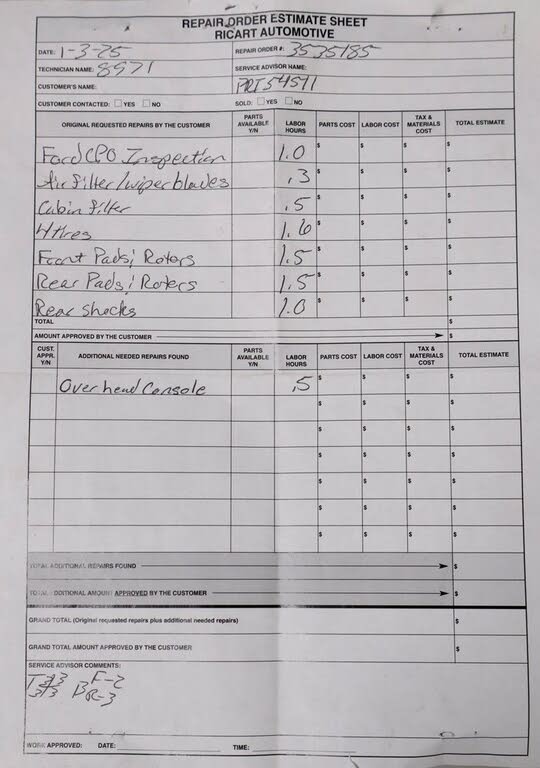 REPAIR ORDER ESTIMATE SHEET
RICART AUTOMOTIVE
DATE: 1-3-25 REPAIR ORDER #: 3535185
TECHNICIAN NAME: 8971 SERVICE ADVISOR NAME:
CUSTOMER'S NAME: PRT54511
CUSTOMER CONTACTED: ☐ YES ☐ NO SOLD: ☐ YES ☐ NO
ORIGINAL REQUESTED REPAIRS BY THE CUSTOMER PARTS AVAILABLE Y/N LABOR HOURS PARTS COST LABOR COST TAX & MATERIALS COST TOTAL ESTIMATE
Ford CPO Inspection 1.0 $ $ $ $
Air filter/wiper blades .3 $ $ $ $
Cabin filter .5 $ $ $ $
4 tires 1.6 $ $ $ $
Front Pads; Rotors 1.5 $ $ $ $
Rear Pads; Roters 1.5 $ $ $ $
Rear shocks 1.0 $ $ $ $
TOTAL $
AMOUNT APPROVED BY THE CUSTOMER $
CUST. APPR. Y/N ADDITIONAL NEEDED REPAIRS FOUND PARTS AVAILABLE Y/N LABOR HOURS PARTS COST LABOR COST TAX & MATERIALS COST TOTAL ESTIMATE
Overhead Console .5 $ $ $ $
$ $ $ $
$ $ $ $
$ $ $ $
$ $ $ $
$ $ $ $
$ $ $ $
TOTAL ADDITIONAL REPAIRS FOUND $
TOTAL ADDITIONAL AMOUNT APPROVED BY THE CUSTOMER $
GRAND TOTAL (Original requested repairs plus additional needed repairs) $
GRAND TOTAL AMOUNT APPROVED BY THE CUSTOMER $
SERVICE ADVISOR COMMENTS:
T 3 F-2
3 3 B R-3
WORK APPROVED: DATE: TIME: